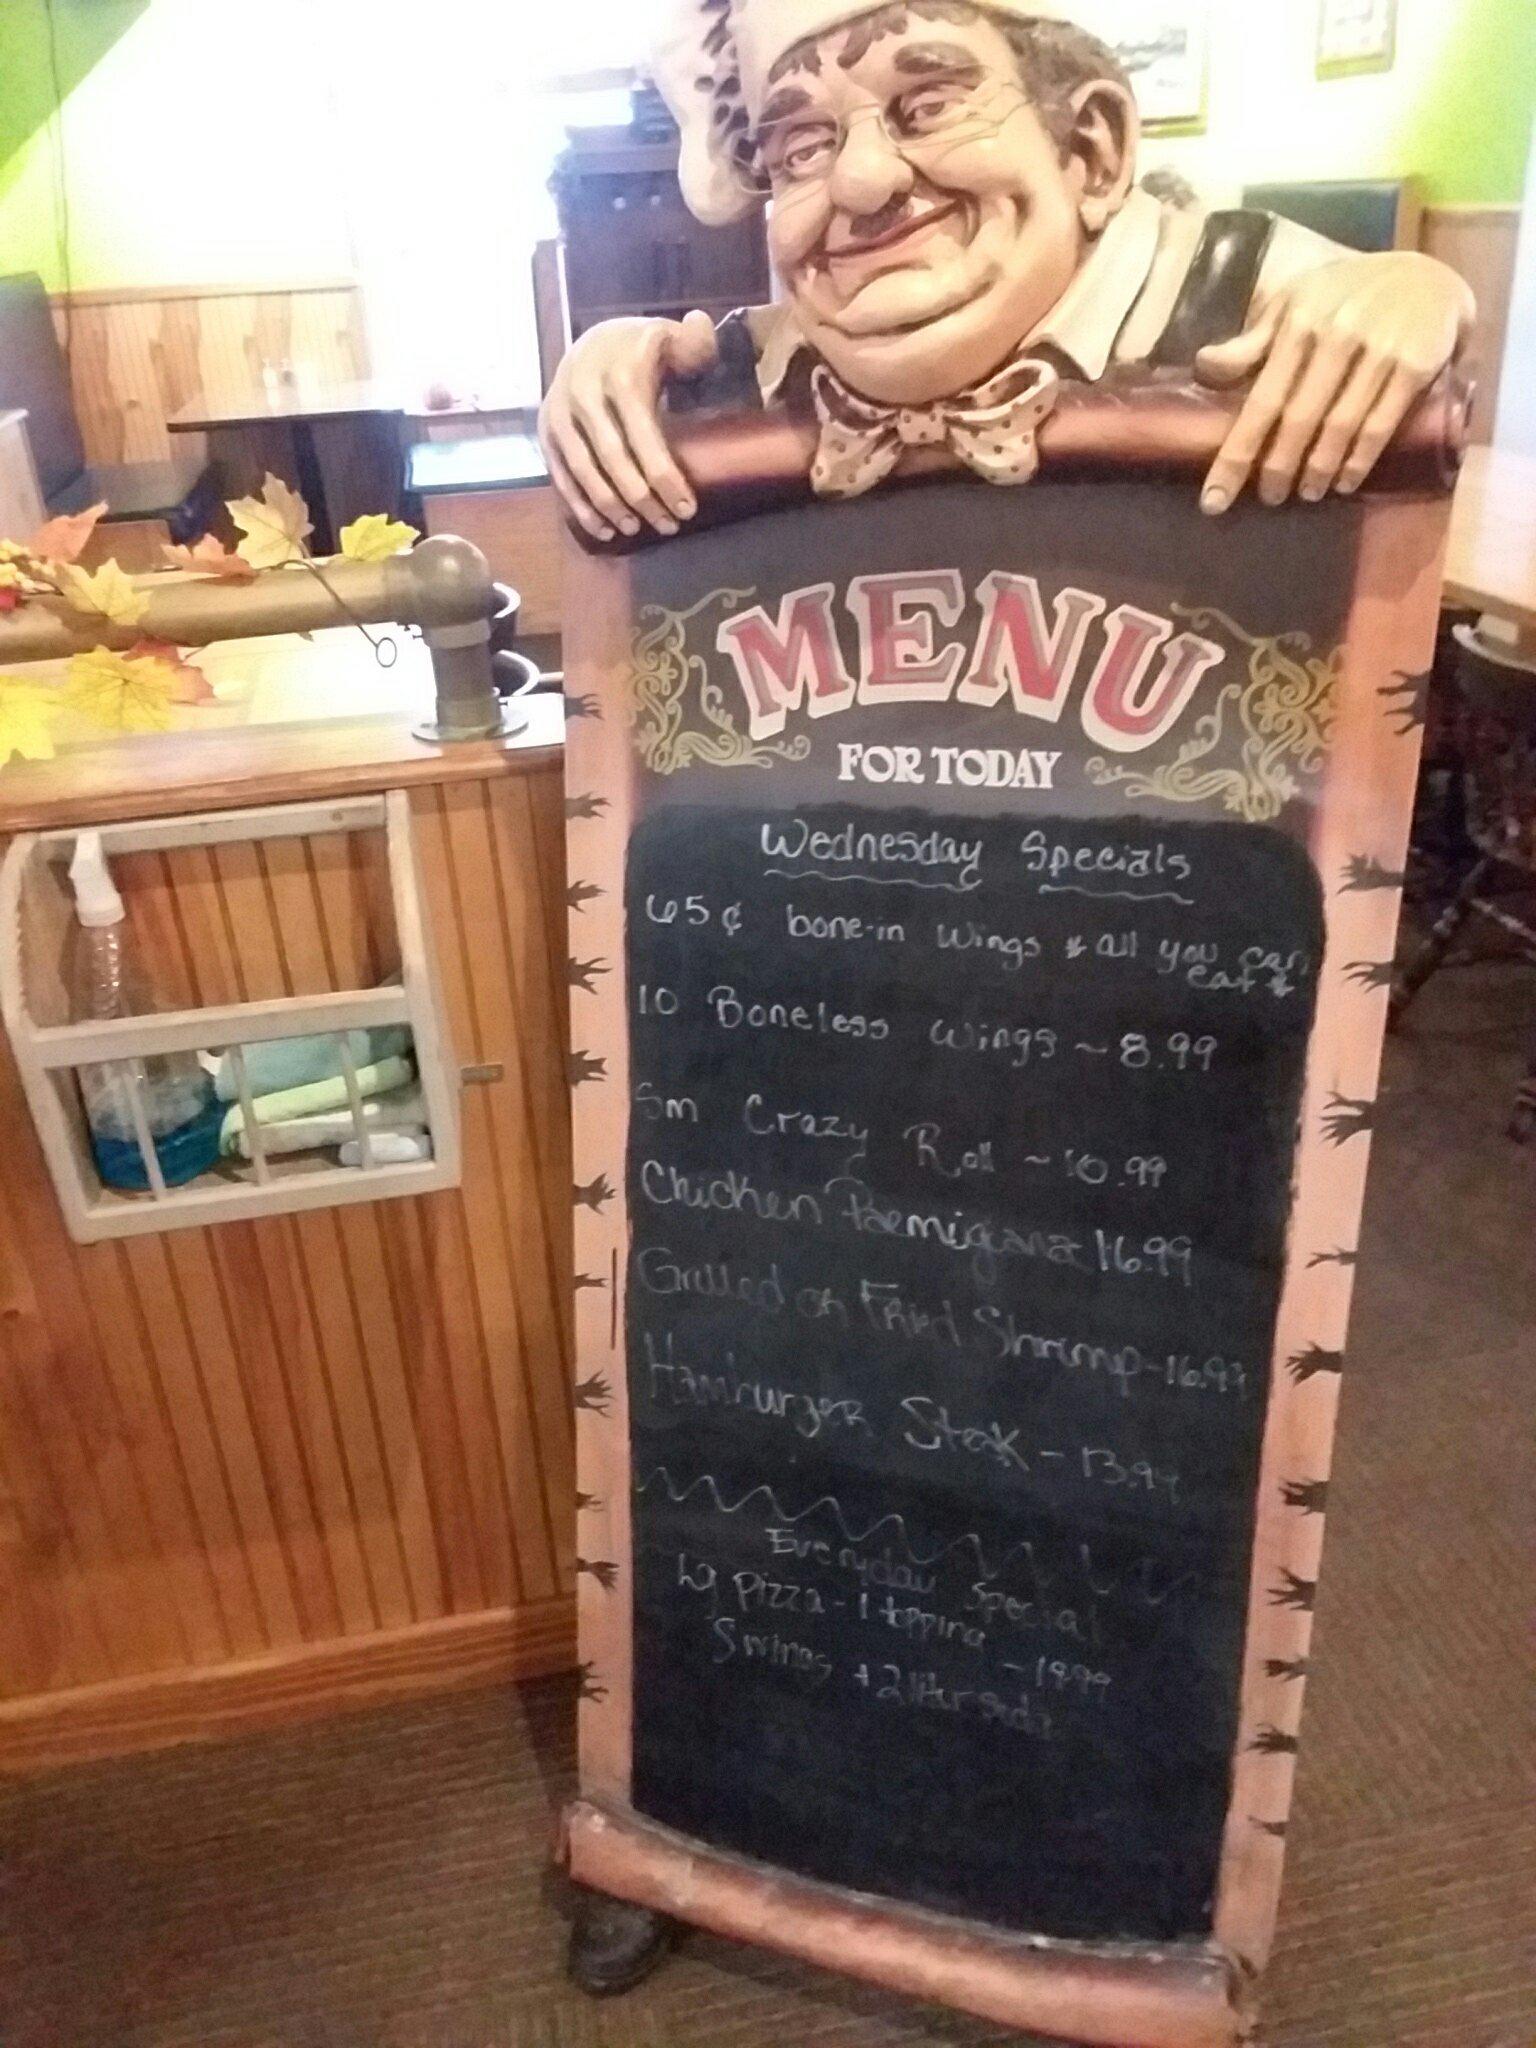 MENU
FOR TODAY
Wednesday Specials
65¢ bone-in wings * all you can
eat *
10 Boneless Wings ~ 8.99
Sm Crazy Roll ~ 10.99
Chicken Parmigiana 16.99
Grilled or Fried Shrimp - 16.99
Hamburger Steak - 13.99
Everyday Special
Lg pizza - 1 topping
5 wings + 2 liter soda - 18.99